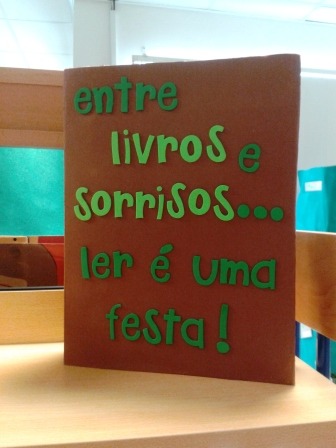 entre
livros e
sorrisos...
ler é uma
festa!